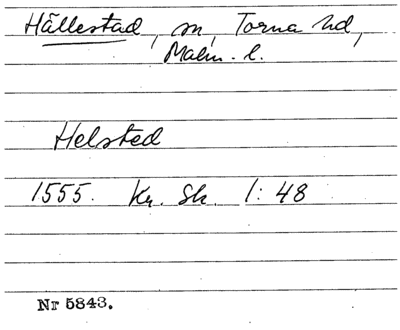 Hällestad, sn, Torna hd,
Malm. l.
Helsted
1555. Kr. Sk. 1:48
Nr 5843.